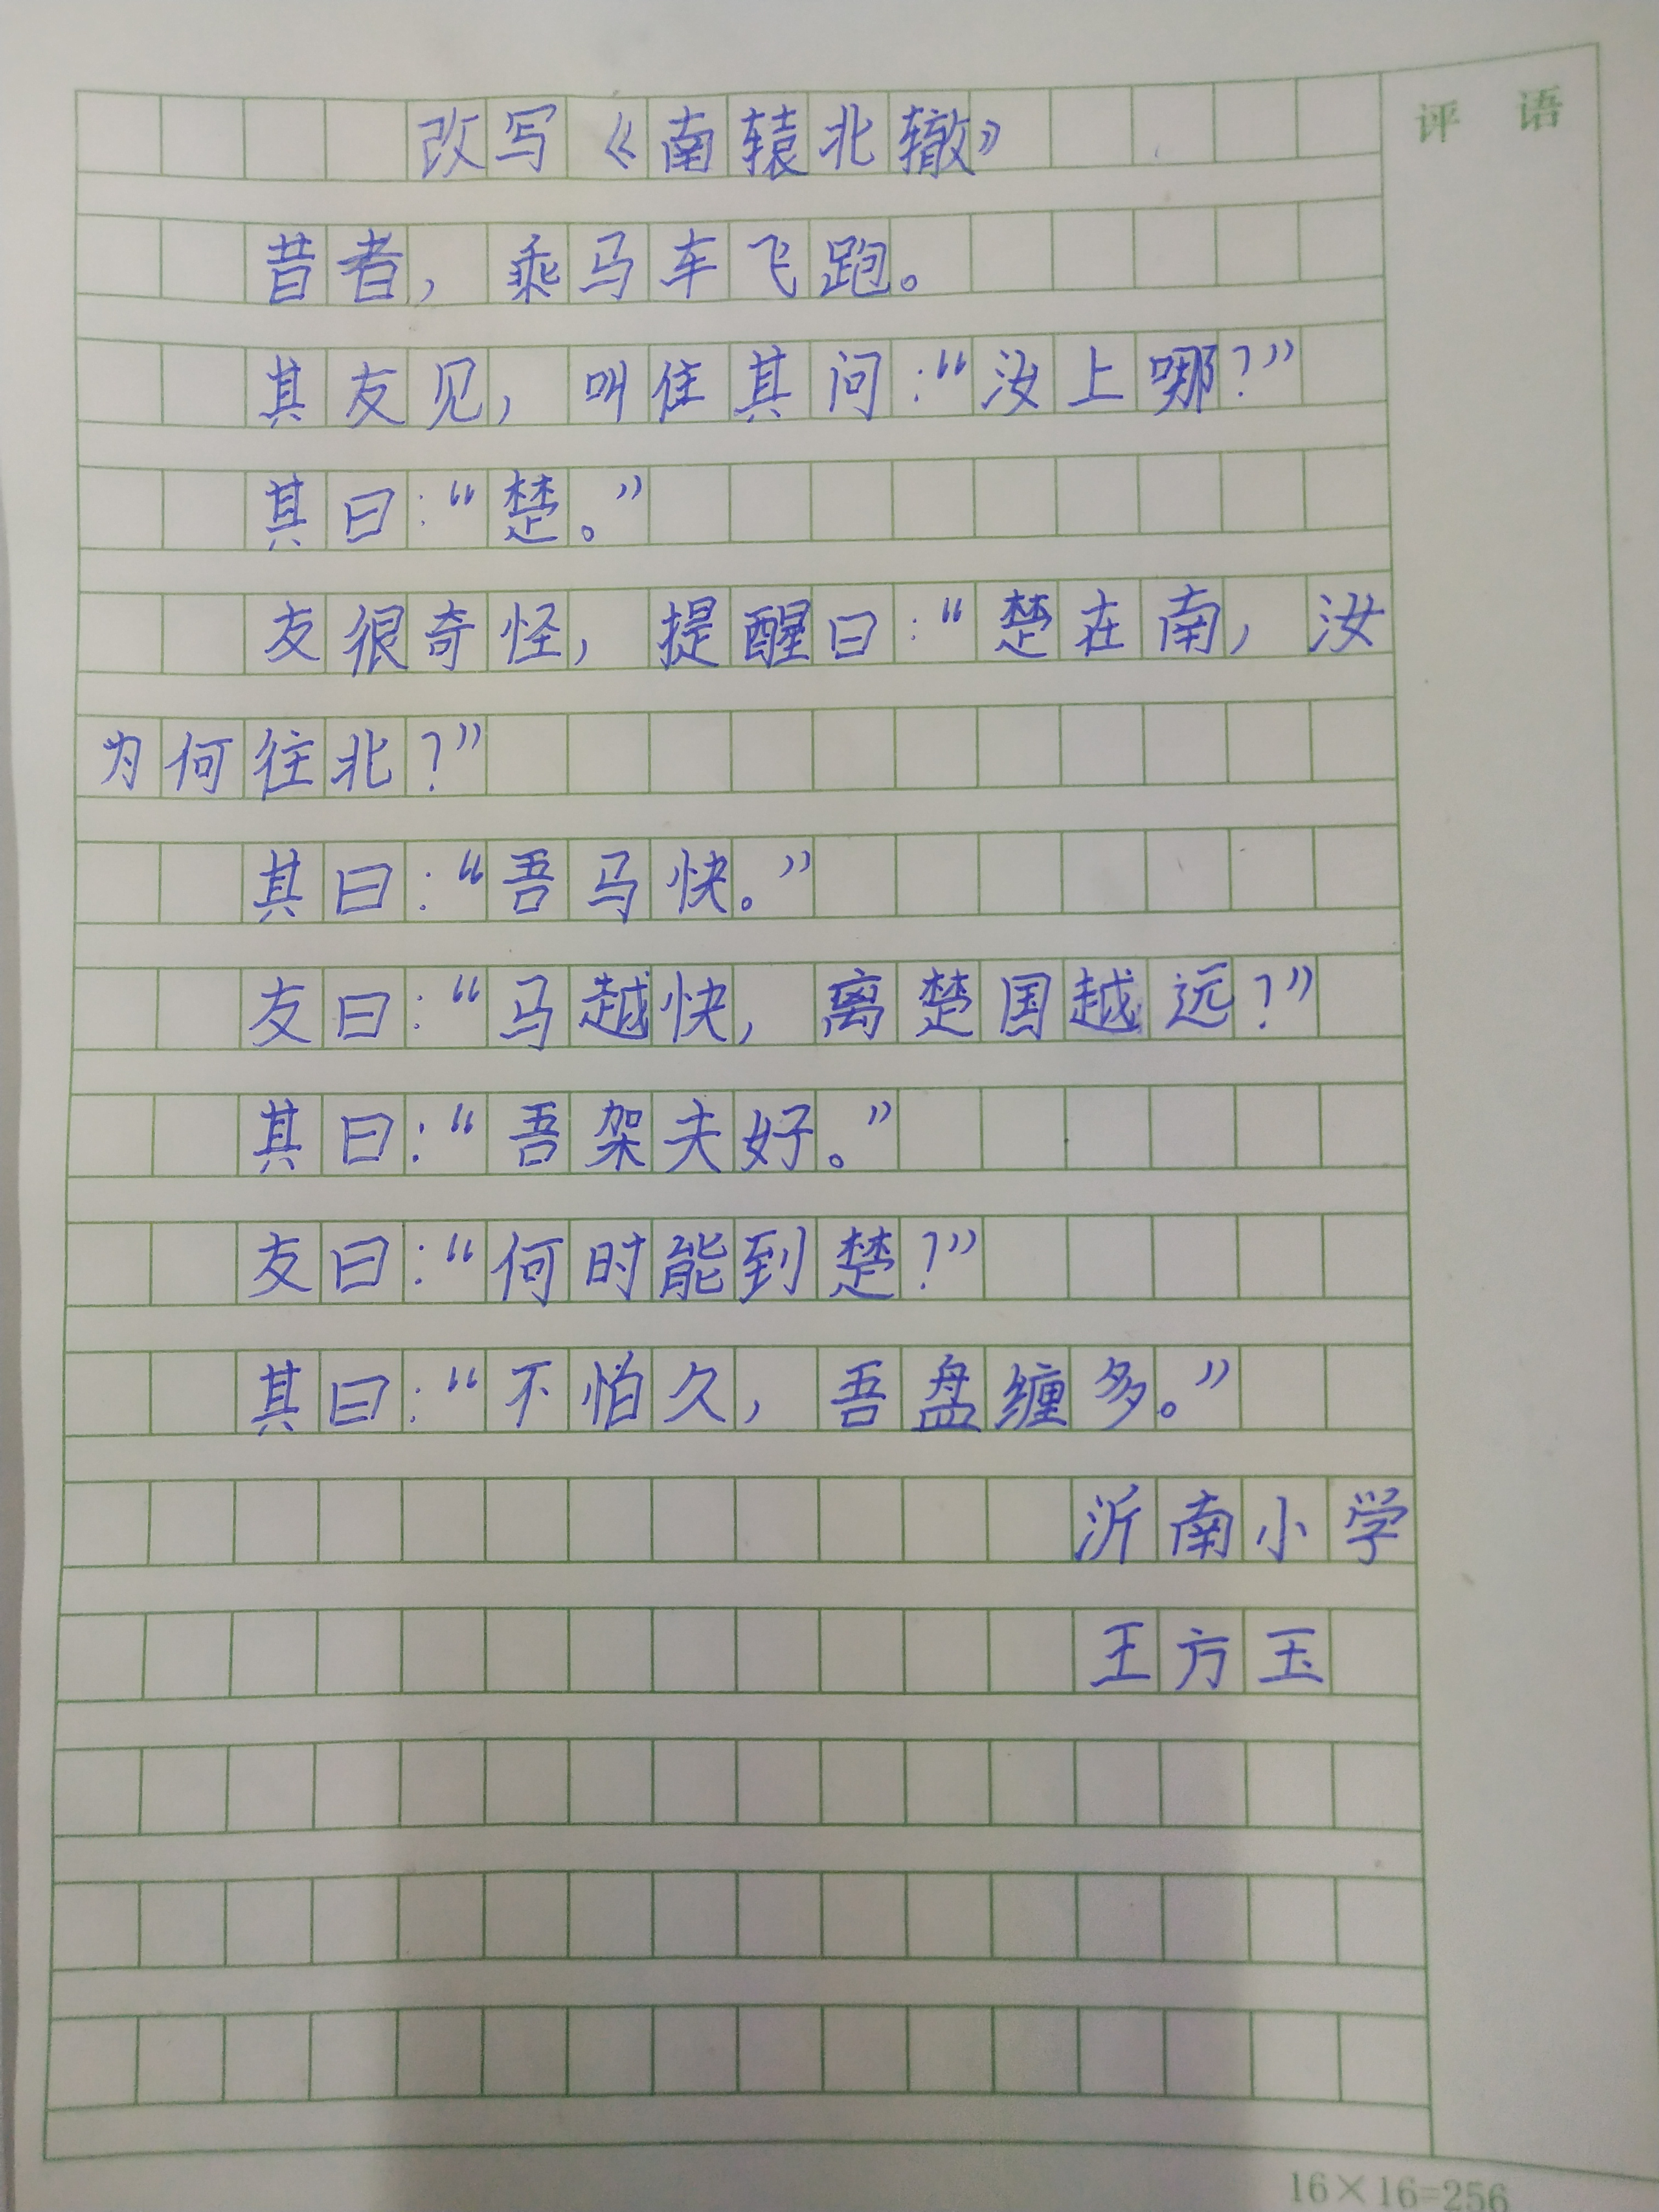 改写《南辕北辙》
评 语
昔者，乘马车飞跑。
其友见，叫住其问：“汝上哪？”
其曰：“楚。”
友很奇怪，提醒曰：“楚在南，汝
为何往北？”
其曰：“吾马快。”
友曰：“马越快，离楚国越远？”
其曰：“吾架夫好。”
友曰：“何时能到楚？”
其曰：“不怕久，吾盘缠多。”
沂南小学
王方玉
16×16=256